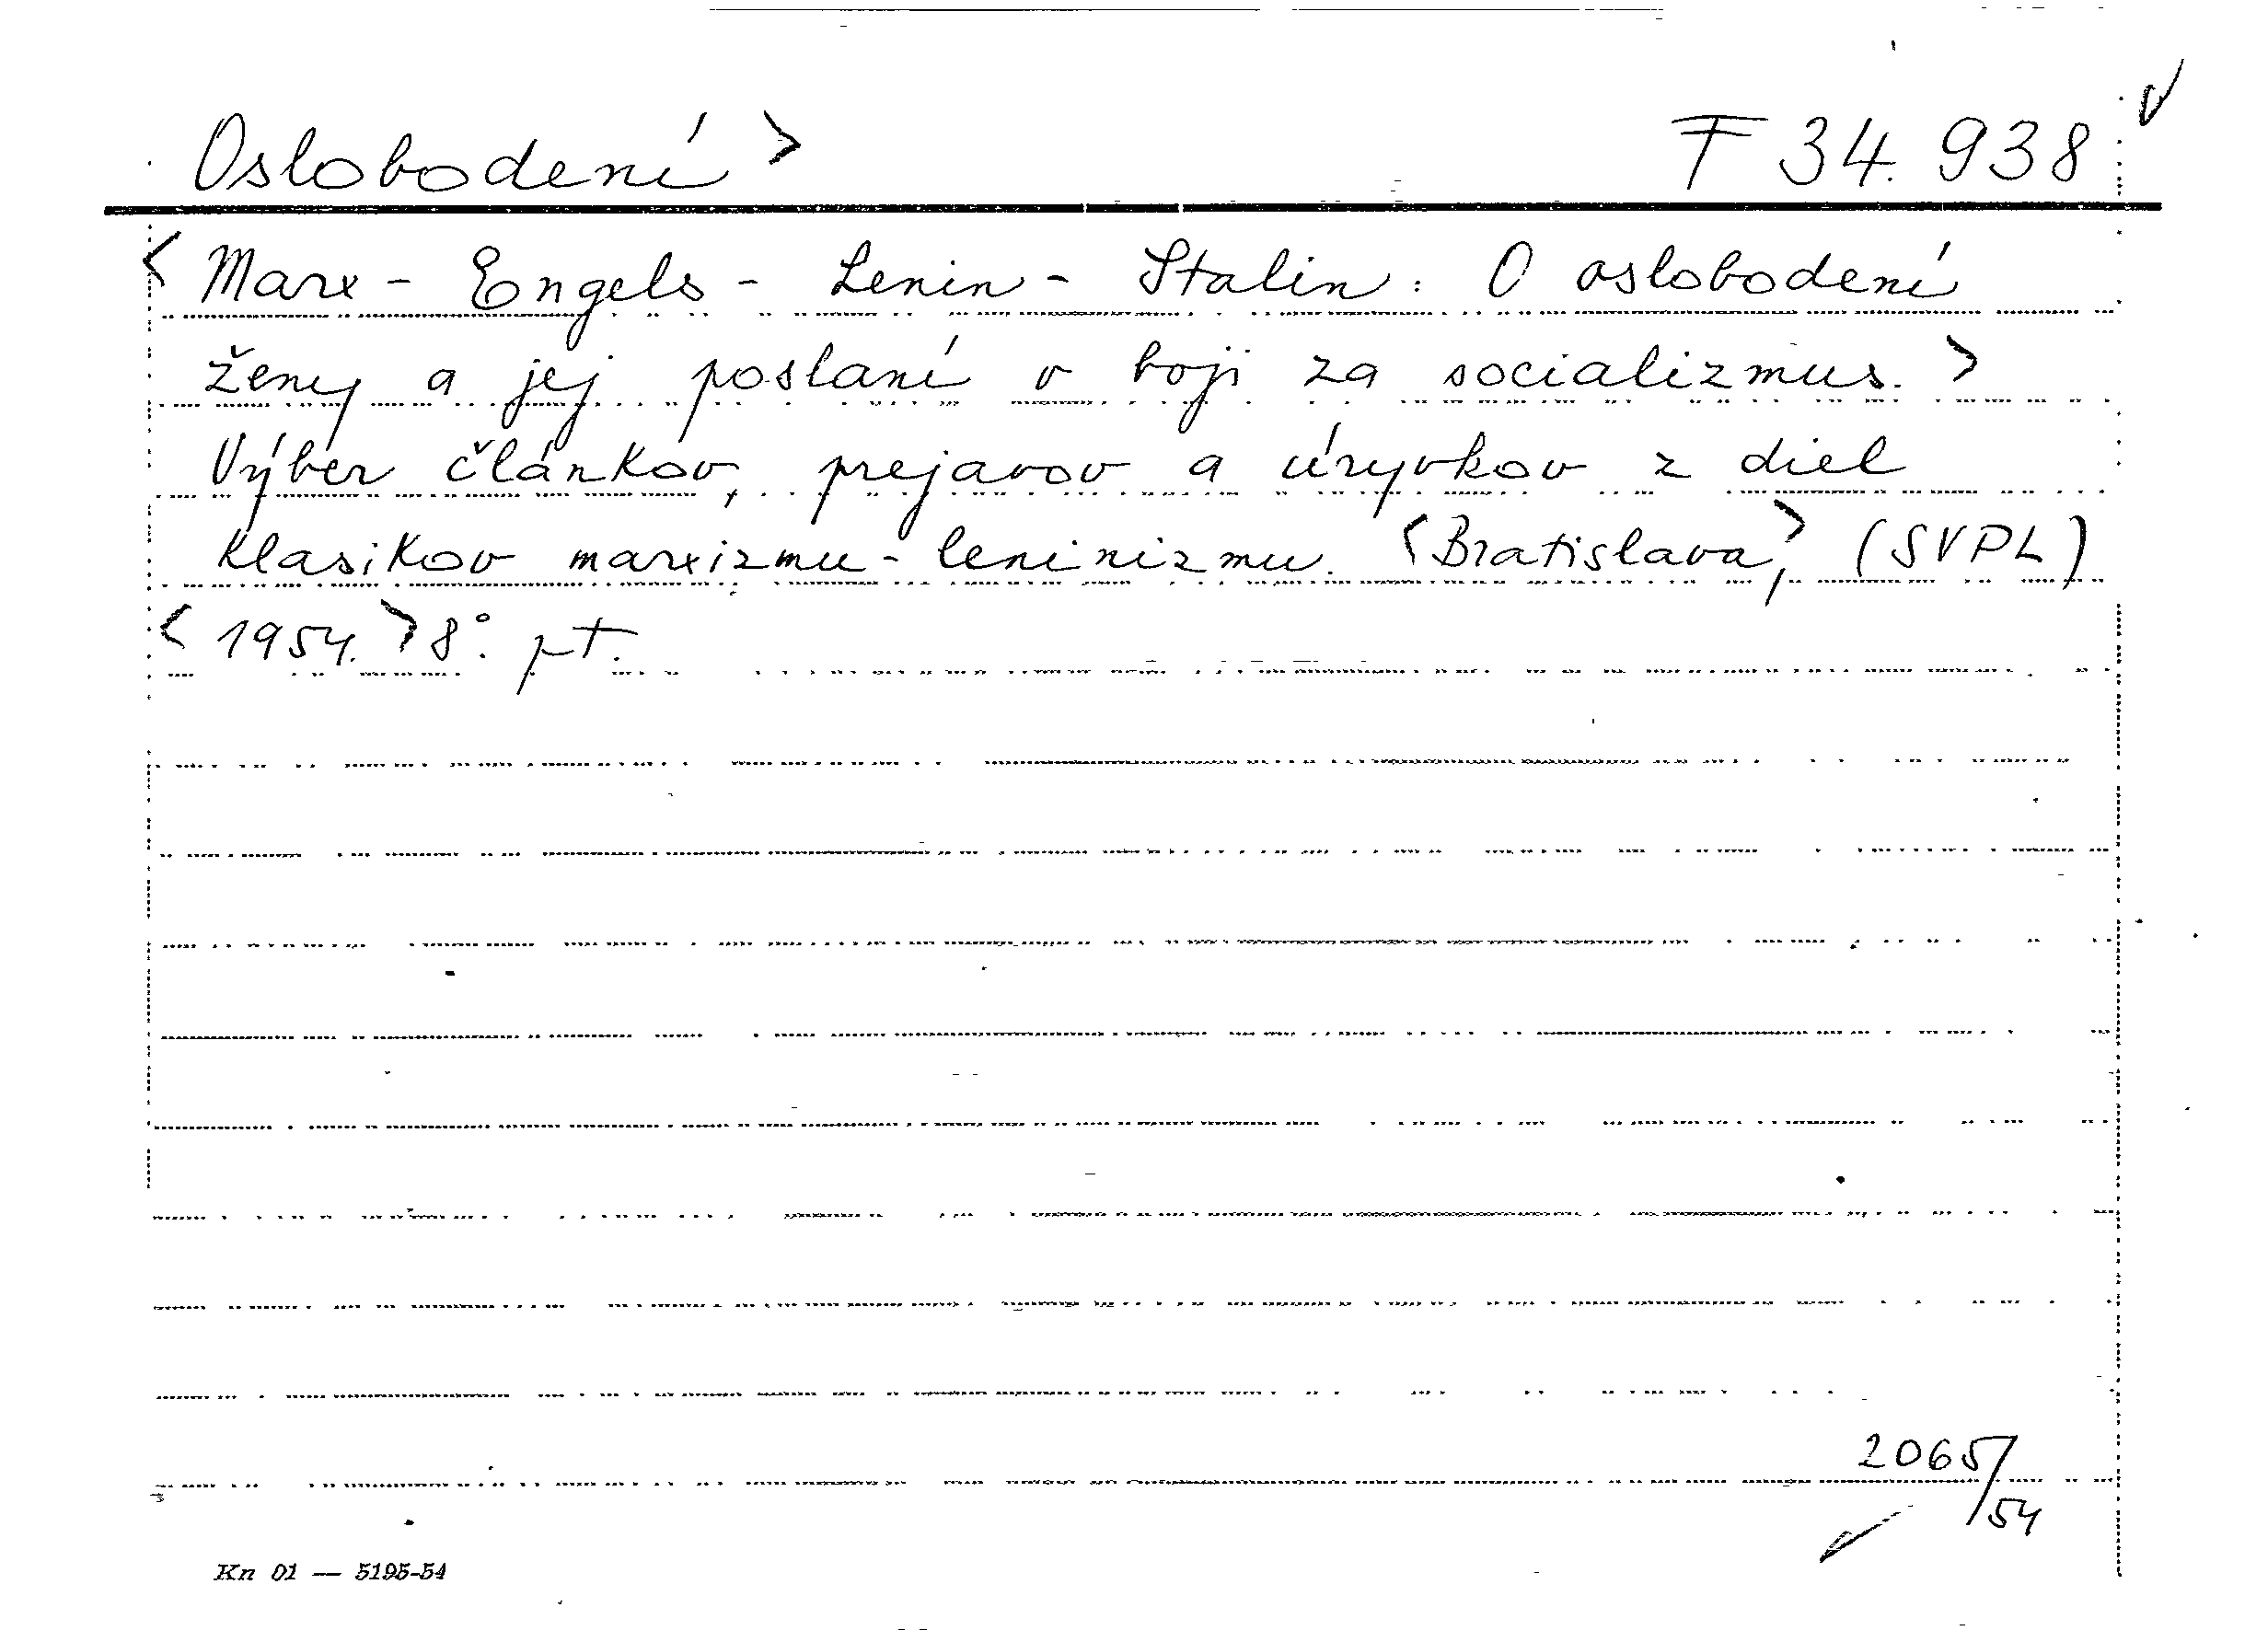 Oslobodení > F 34.938
< Marx - Engels - Lenin - Stalin: O oslobodení
ženy a jej poslaní v boji za socializmus. >
Výber článkov, prejavov a úryvkov z diel
klasikov marxizmu-leninizmu. <Bratislava,> (SVPL)
< 1954. > 8°. pt.
2065/54
Kn 01 — 5195-54